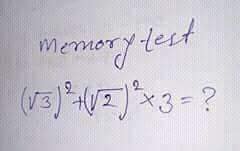 memory test
(√3)²+(√2)²×3=?